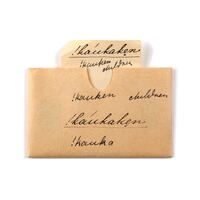 !kaúkakǝn
!kauken
children
!kauken children
!kaúkakǝn
!kauka